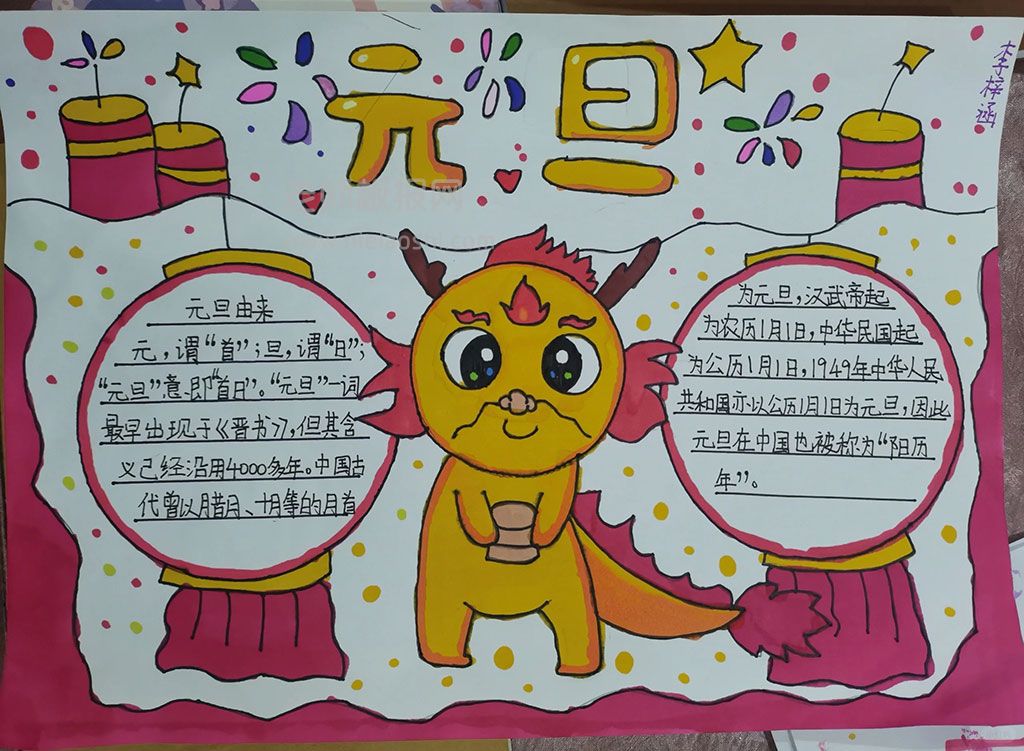 元旦
李梓涵
元旦由来
元，谓“首”；旦，谓“日”；
“元旦”意即“首日”。“元旦”一词
最早出现于《晋书》，但其含
义已经沿用4000多年。中国古
代曾以腊月、十月等的月首
为元旦，汉武帝起
为农历1月1日，中华民国起
为公历1月1日，1949年中华人民
共和国亦以公历1月1日为元旦，因此
元旦在中国也被称为“阳历
年”。